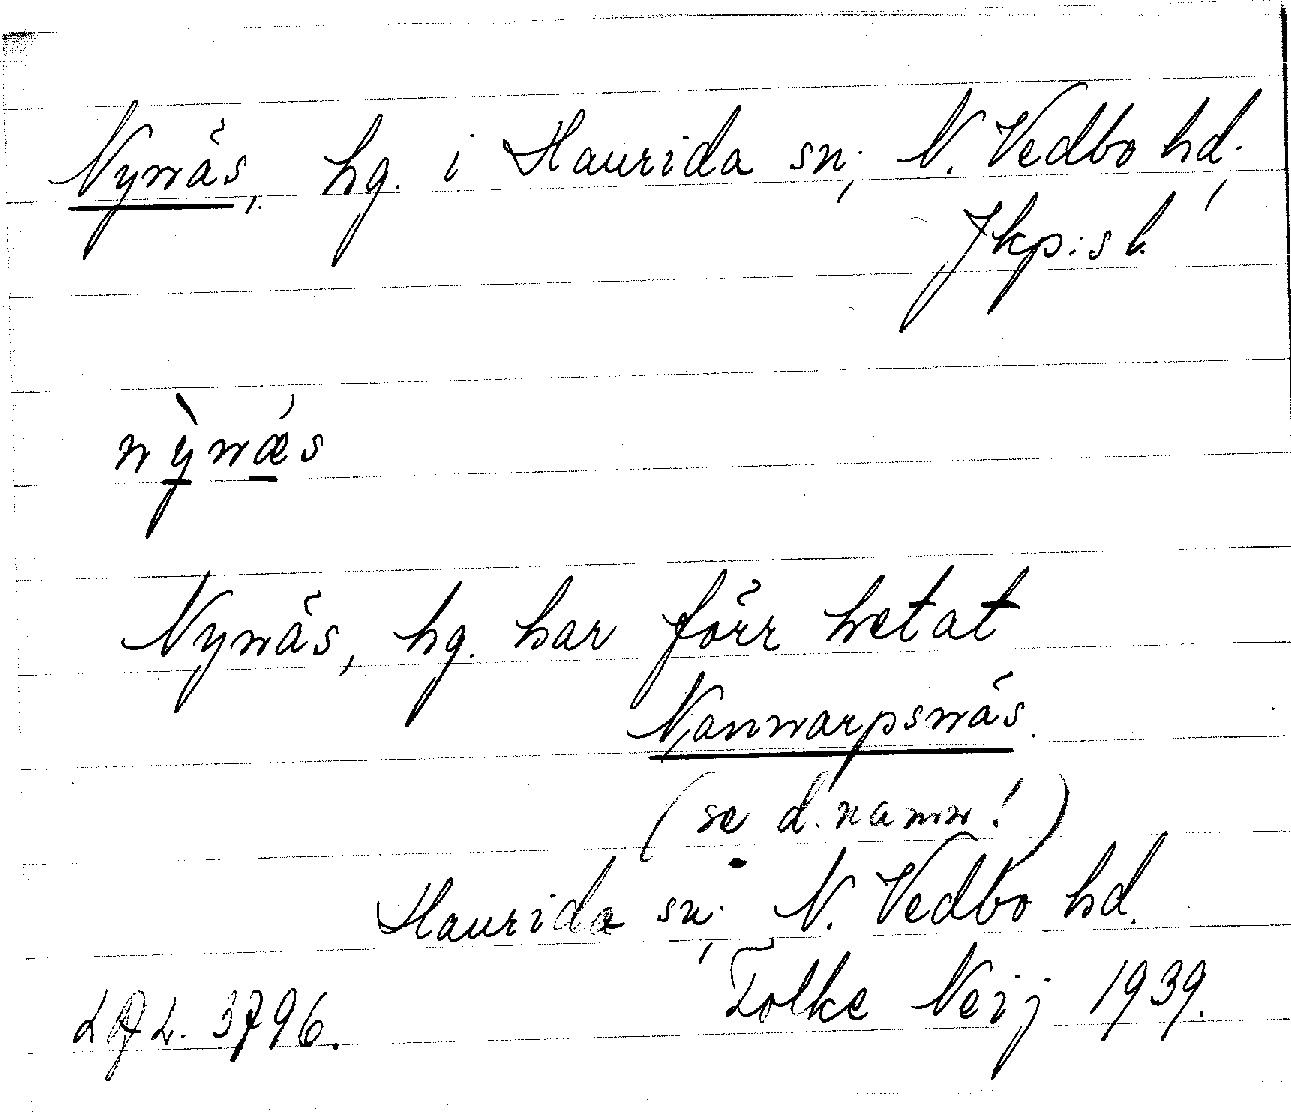 Nynäs, hg. i Haurida sn., N. Vedbo hd.,
Jkp:s l.
nỳnǽs
Nynäs, hg. har förr hetat
Nannarpsnäs.
(se d. namn!)
Haurida sn., N. Vedbo hd.
Folke Neij 1939.
3796.